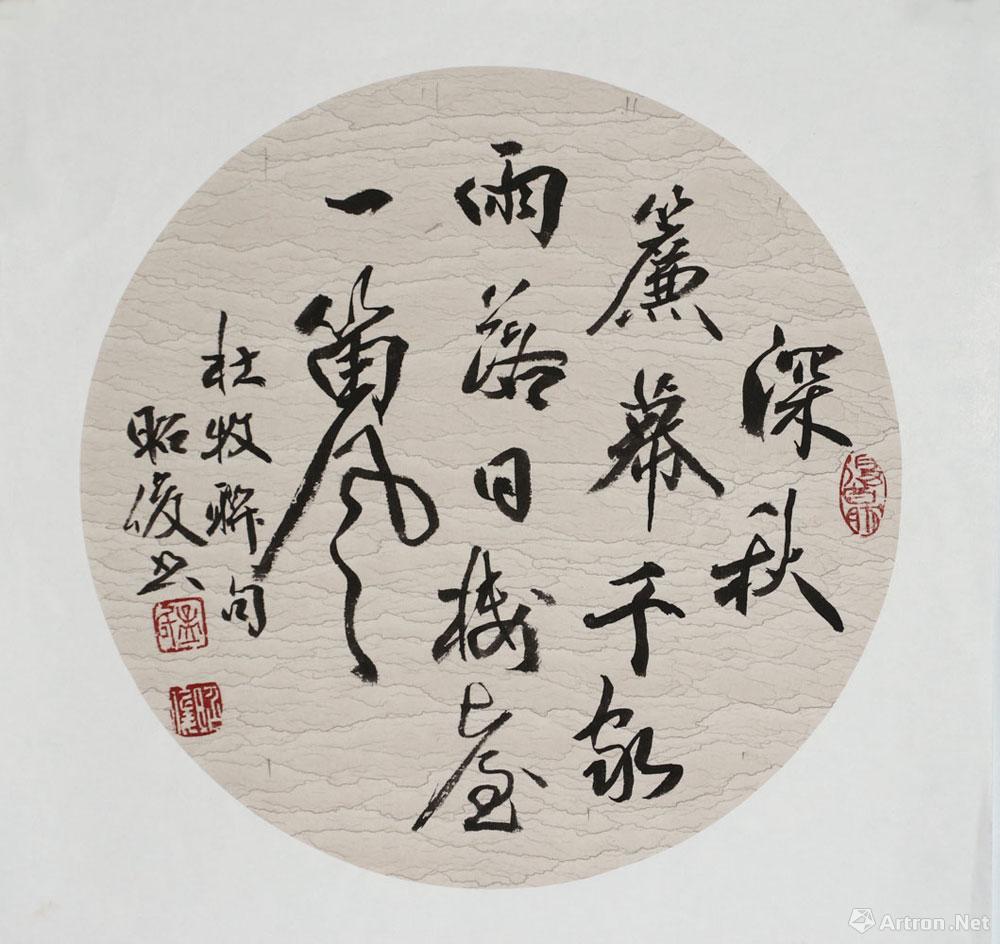 深秋
簾幕千家
雨落日樓臺
一笛風
杜牧聯句
昭俊书
Artron.Net